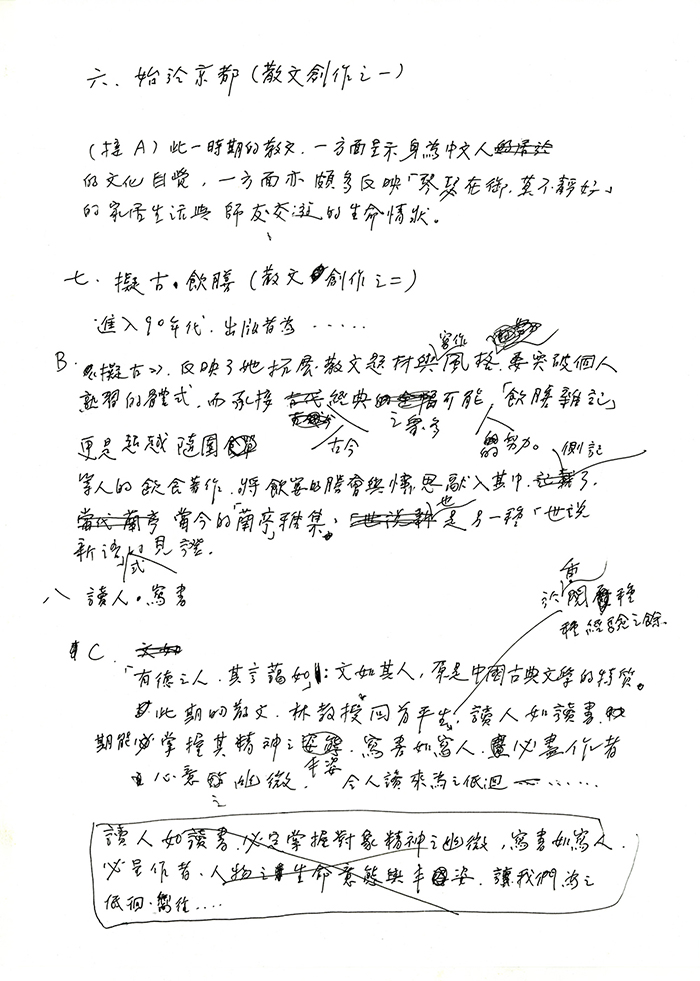 六、始於京都(散文創作之一)
(接A)此一時期的散文,一方面呈示身為中文人
的文化自覺,一方面亦頗多反映「琴瑟在御,莫不靜好」
的家居生活與師友交遊的生命情狀。
七、擬古・飲膳(散文創作之二)
進入90年代,出版者為……
寫作
B.《擬古》,反映了她拓展散文題材與風格,要突破個人
熟習的體式,而承接古代經典的可能,「飲膳雜記」
古今 之眾多
更是超越隨園 的努力。側記
等人的飲食著作,將飲宴的勝會與情思融入其中,記載了
當代蘭亭 當今的「蘭亭」雅集,世說新也是另一種「世說
新語」的見證。
式
八 讀人・寫書
重
於閱種
種經驗之餘
C. 文如
「有德之人,其言藹如」;文如其人,原是中國古典文學的特質。
此期的散文,林教授回首平生,讀人如讀書,
期能必掌握其精神之姿態,寫書如寫人,必盡作者
丰姿
心意 幽微,令人讀來為之低迴……
之
讀人如讀書,必定掌握對象精神之幽微,寫書如寫人,
必呈作者、人物之生命意態與丰姿,讓我們為之
低徊、嚮往....